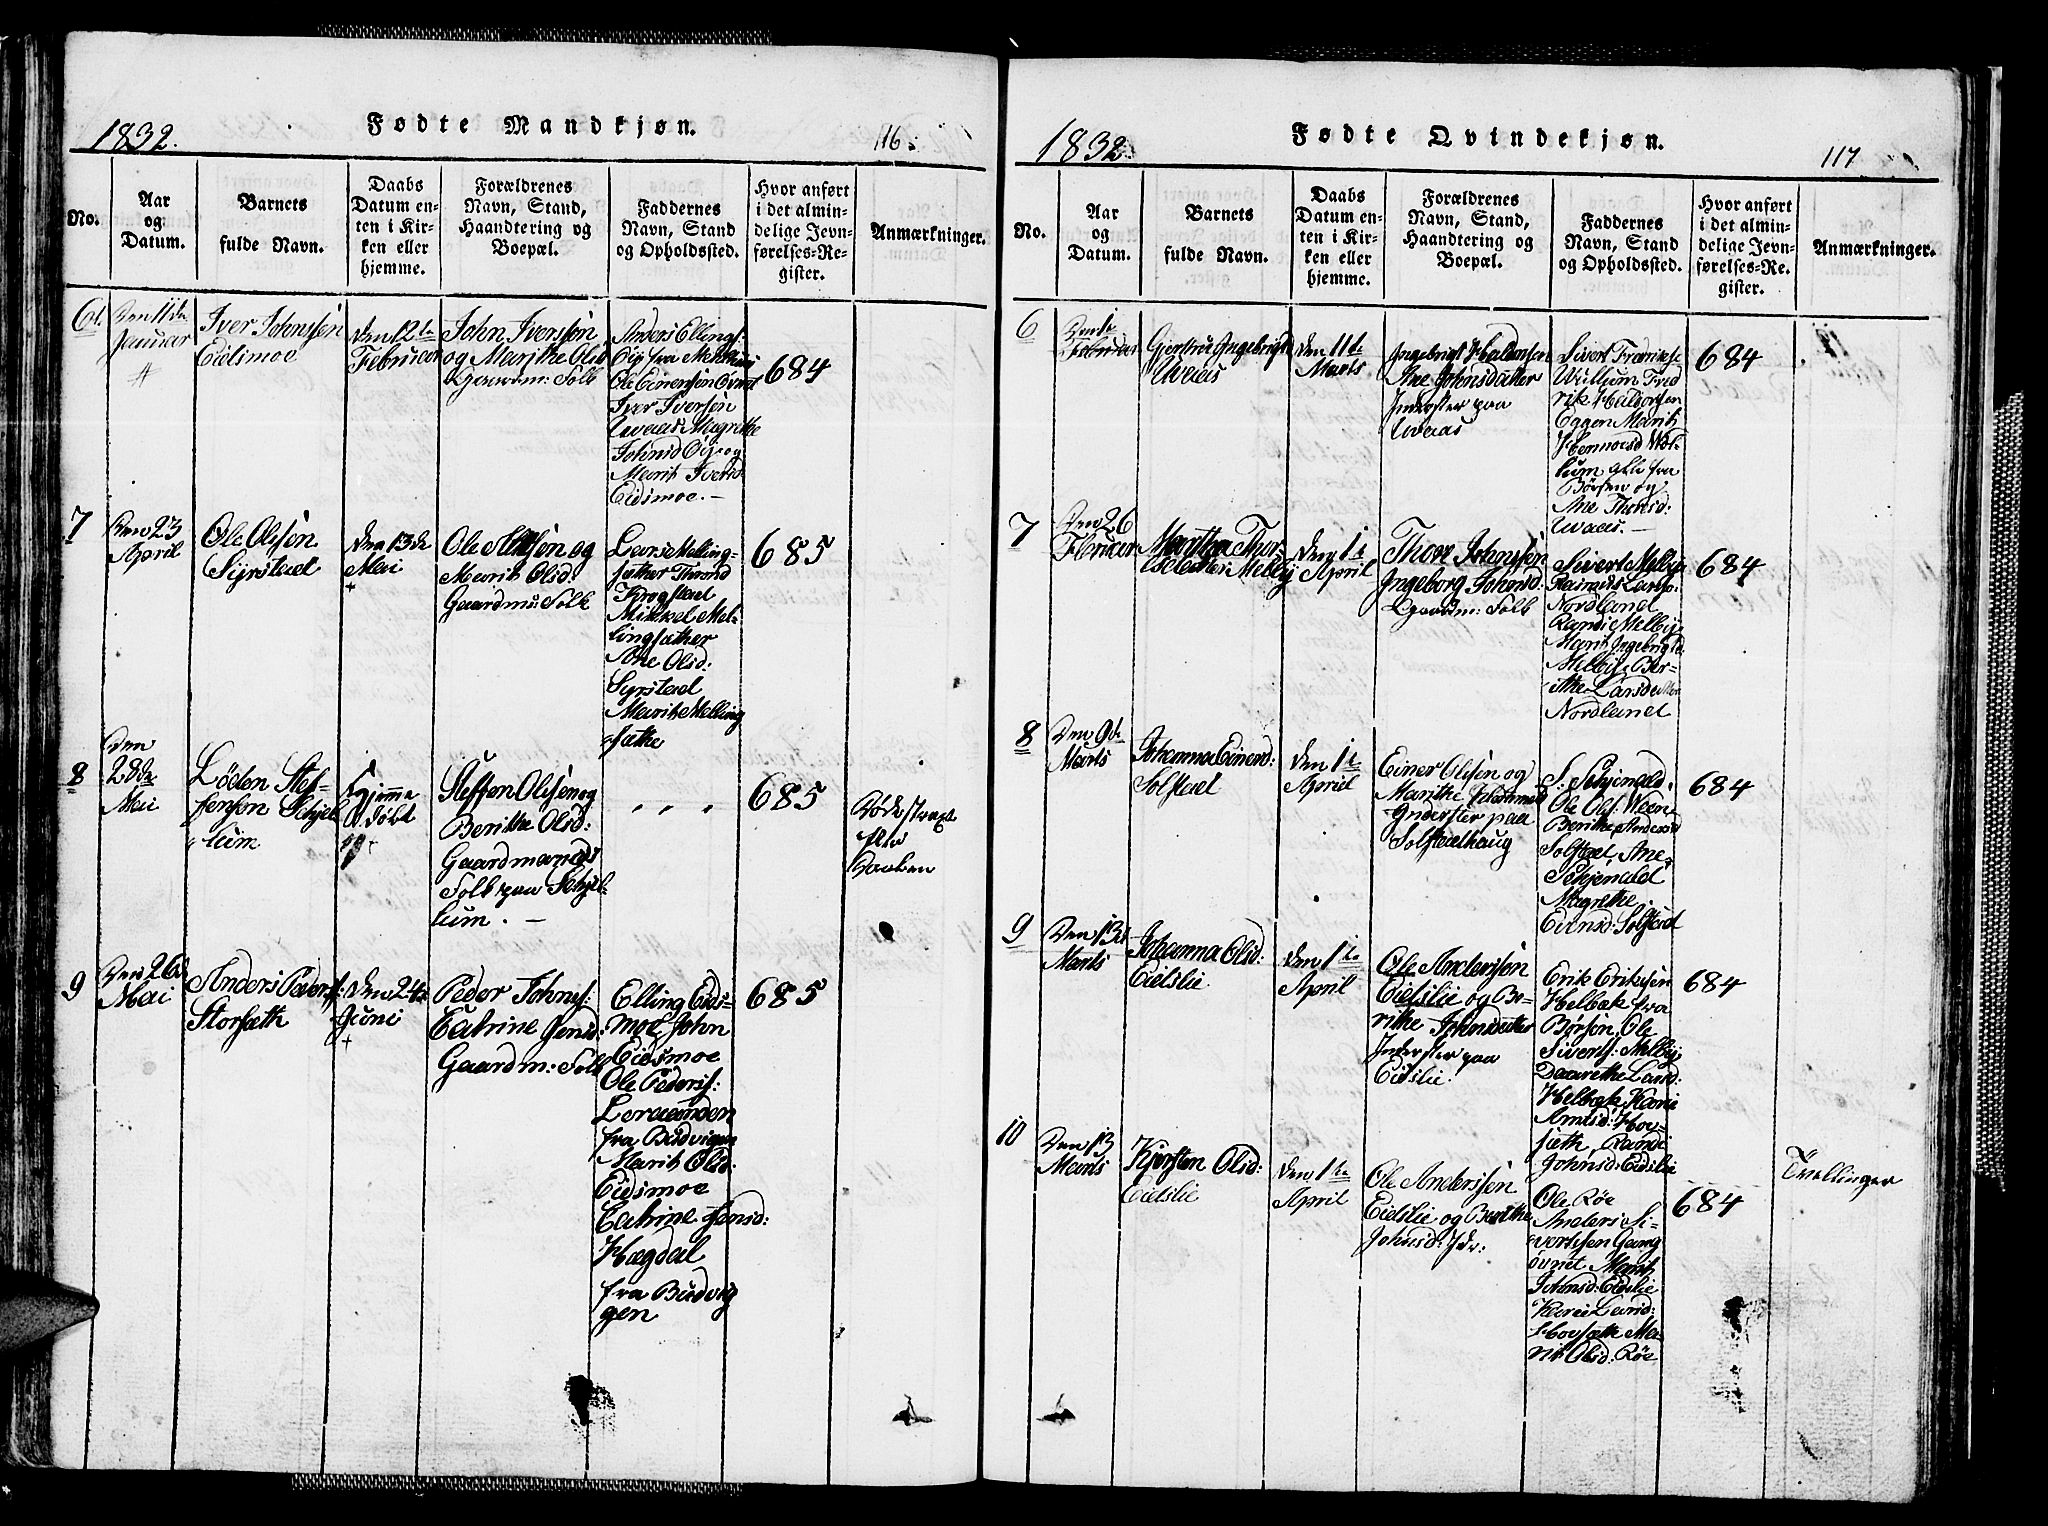 1832.
Fødte Mandkjøn.
116
No.
Aar
og
Datum.
Barnets
fulde Navn.
Daabs
Datum en-
ten i Kir-
ken eller
hjemme.
Forældrenes
Navn, Stand,
Haandtering og
Boepæl.
Faddernes
Navn, Stand
og Opholdssted.
Hvor anført
i det almin-
delige Jevn-
førelses-Re-
gister.
Anmærkninger.
6
Den 11 de
Januar
Iver Johnssøn
Eidsmoe
den 12te
Februar
John Iverssøn
og Marithe Olsd
Gaardm: Folk
Anders Ellings:
Øie fra
Ole Einersen
Iver Iversen
Uvaas Magrethe
Johnsd Øie og
Marit Iversd
Eidsmoe. –
684
7
Den 23
April
Ole Olsøn
Syrstad
den 13de
Mai
+
Ole og
Marit Olsd:
Gaardm: Folk
Lars Melling-
sæther Thrond
Krogstad
Mikkel Mel-
lingsæther
Ane Olsd:
Syrstad
Marit Melling
sæthe
685
8
Den
28de
Mai
Løden Stef-
fensen Schjel-
lum
Hjemme
døbt
Steffen Olsen og
Berithe Olsd:
Gaardmands
Folk paa Schjel-
lum. –
" " "
685
Døde strax
efter
Daaben
9
Den 26de
Mai
Anders Peders:
Storsæth
den 24de
Juni
+
Peder Johns:
Catrine Jensd:
Gaardm: Folk
Elling Eids-
moe John
Eidsmoe
Ole Peders:
fra Budvigen
Marit Olsd:
Eidsmoe
Catrine Jensd:
Hægdal
fra Budvig
gen
685
1832.
Fødte Qvindekjøn.
117
No.
Aar
og
Datum.
Barnets
fulde Navn.
Daabs
Datum en-
ten i Kir-
ken eller
hjemme.
Forældrenes
Navn, Stand,
Haandtering og
Boepæl.
Faddernes
Navn, Stand
og Opholdssted.
Hvor anført
i det almin-
delige Jevn-
førelses-Re-
gister.
Anmærkninger.
6
Februar
Gjertru Ingebrigtd
Uvaas
den 11te
Marts
Ingebrigt Haldorsen
Ane Johnsdatter
Inderster paa
Uvaas
Sivert
Willum Fred
rik Haldorsen
Eggen Marit
Wil-
lum alle fra
Børsen og
Ane Thorsd:
Uvaas. –
684
7
Den 26
Februar
Martha Thor-
datter Melby
den 1te
April
Thore Johnssøn
Ingeborg Johnsd:
Gaardm: Folk
Sivert Melby
Rasmus Lars:
Nordland
Randi Melby
Marit Ingebrigtd
Melby Ber-
ithe Larsdatter
Nordland
684
8
Den 9de
Marts
Johanna Einersd:
Solstad
den 1te
April
Einer Olsen og
Marithe
Inderster paa
Solstadhaug
S. Schjenald
Ole Ols: Ween
Berithe Andersd
Solstad, Ane
Schjenald
Magrethe
Einersd: Solstad
684
9
Den 13de
Marts
Johanna Olsd:
Eidslie
den 1te
April
Ole Anderssøn
Eidslie og Be-
rithe Johnsdatter
Inderster paa
Eidslie.
Erik Eriksen
Helbæk fra
Børsen, Ole
Siverts: Melby
Daarethe Larsd:
Helbæk Karri
Arntsd: Hov-
sæth, Randi
Johnsd: Eidslie
684
10
Den 13
Marts
Kjersten Olsd:
Eidslie
den 1te
April
Ole Anderssøn
Eidslie og Berithe
Johnsd: Idr:
Ole Røe
Anders Si-
vertsen Gang
Marit
Johnsd: Eidslie
Karri Larsd:
Hovsæth Ma-
rit Olsd: Røe
684
Tvillinger